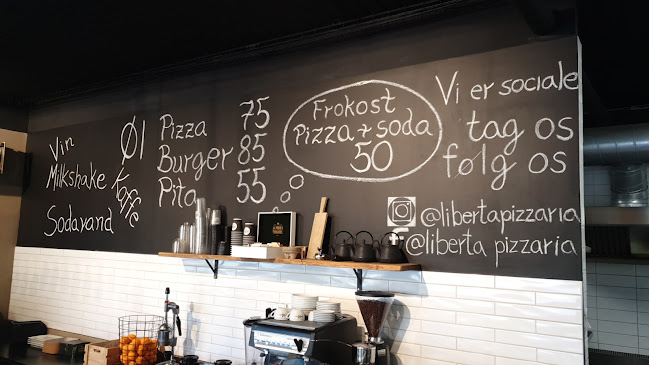 Vin
Milkshake
Sodavand
Øl
Kaffe
Pizza 75
Burger 85
Pita 55
Frokost
Pizza + soda
50
Vi er sociale
tag os
følg os
@libertapizzaria
@liberta pizzaria